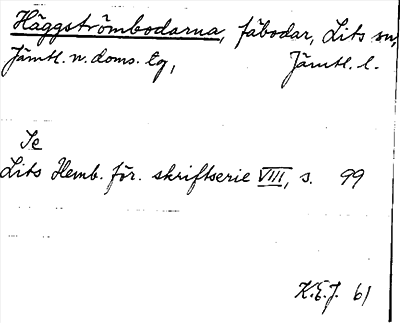 Häggströmbodarna, fäbodar, Lits sn,
Jämtl. n. doms. tg, Jämtl. l.
Se
Lits Hemb. för. skriftserie VIII, s. 99
K.E.J. 61